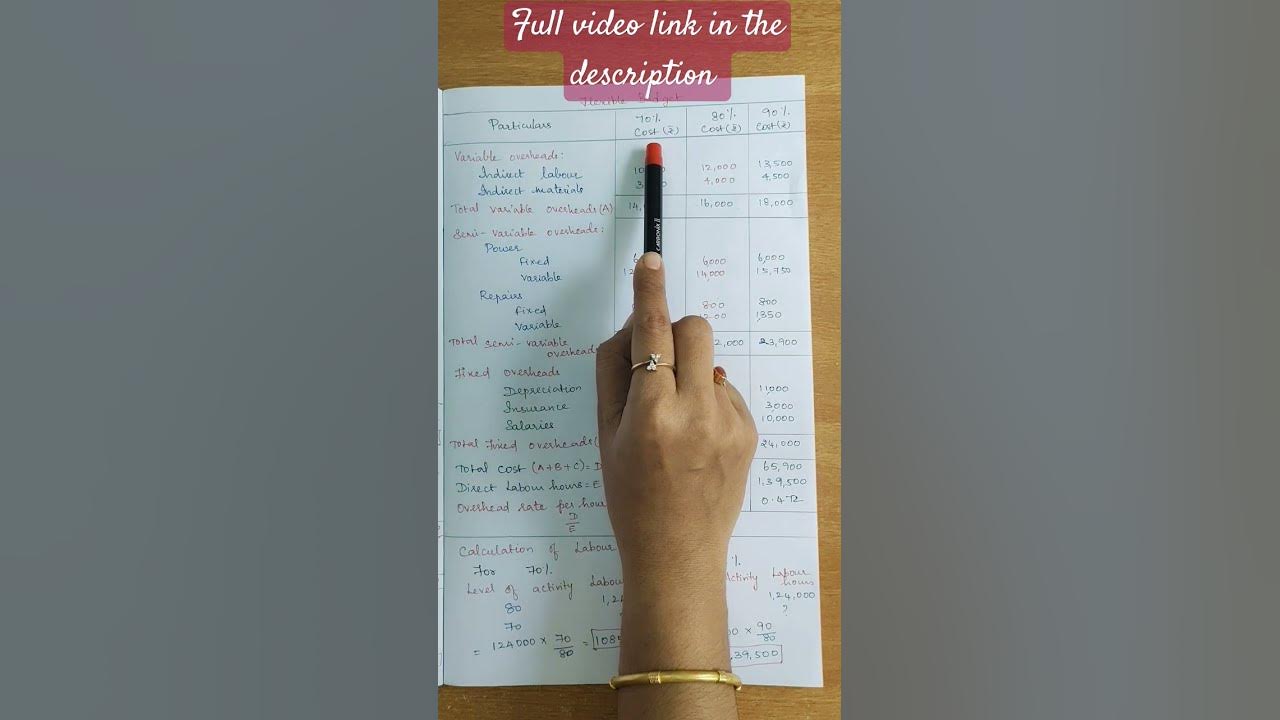 Full video link in the
description
Flexible Budget
Particulars 70% Cost (₹) 80% Cost (₹) 90% Cost (₹)
Variable overheads:
Indirect labour 12,000 13,500
Indirect materials 4,000 4,500
Total variable overheads (A) 16,000 18,000
Semi-variable overheads:
Power
Fixed 6000 6,000
Variable 14,000 15,750
Repairs
Fixed 800 800
Variable 1200 1,350
Total semi-variable
overheads 23,900
Fixed overheads
Depreciation 11,000
Insurance 3,000
Salaries 10,000
Total Fixed overheads 24,000
Total cost (A+B+C) = D 65,900
Direct Labour hours = E 1,39,500
Overhead rate per hour 0.472
D/E
Calculation of Labour
For 70%
Level of activity Labour
80
70
= 124000 × 70/80 =
%
Activity Labour hours
1,24,000
?
× 90/80
39,500